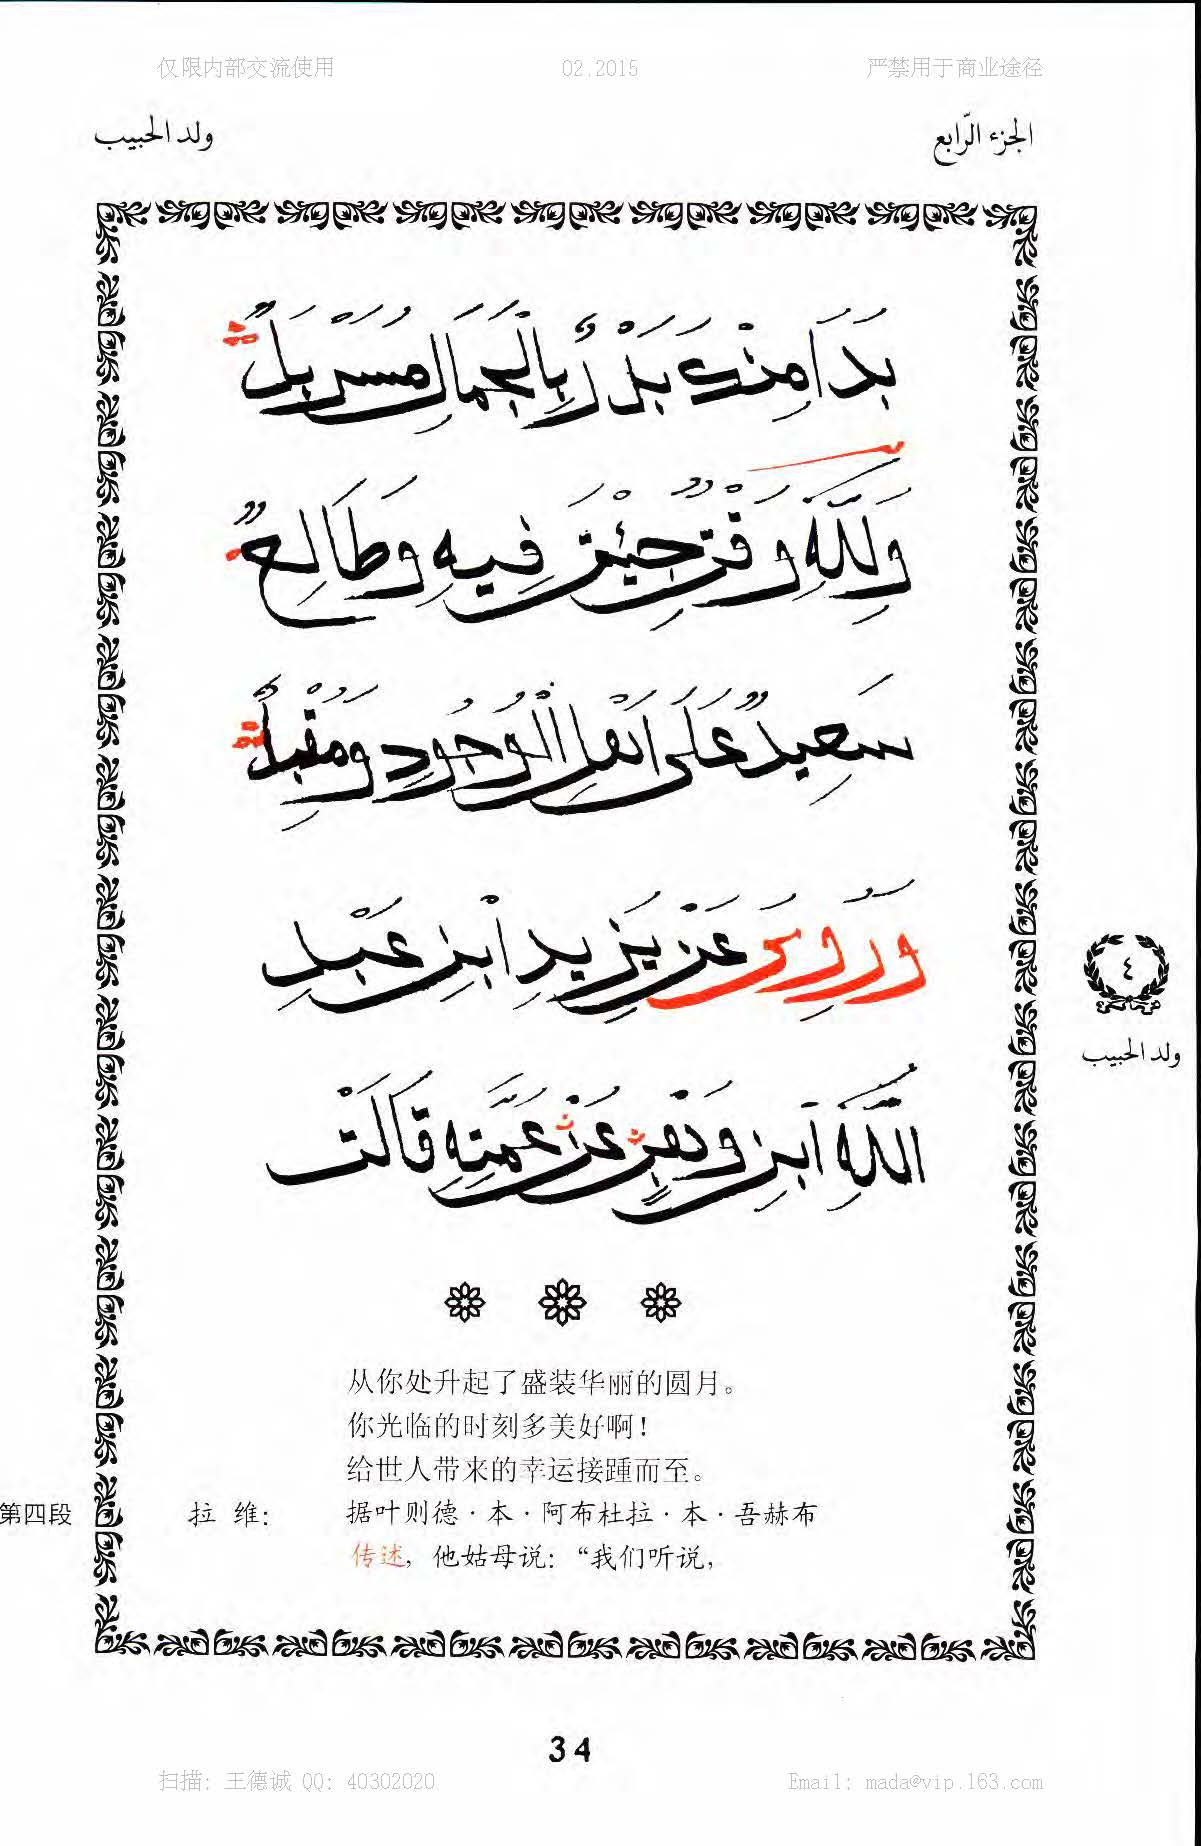 仅限内部交流使用 02.2015 严禁用于商业途径
الجزء الرّابع
ولد الحبيب
بَدَا مِنْكَ بَدْرٌ بِالْجَمَالِ مُسَرْبَلٌ
وَلِلَّهِ وَقْتٌ جِئْتَ فِيهِ وَطَالِعٌ
سَعِيدٌ عَلَى اَهْلِ الْوُجُودِ وَمُقْبِلٌ
وَرُوِىَ عَنْ يَزِيدِ ابْنِ عَبْدِ
اللَّهِ ابْنِ وَهْبٍ عَنْ عَمَّتِهِ قَالَتْ
٤
ولد الحبيب
从你处升起了盛装华丽的圆月。
你光临的时刻多美好啊！
给世人带来的幸运接踵而至。
第四段 拉 维： 据叶则德·本·阿布杜拉·本·吾赫布
传述，他姑母说：“我们听说，
34
扫描：王德诚 QQ：40302020 Email：mada@vip.163.com